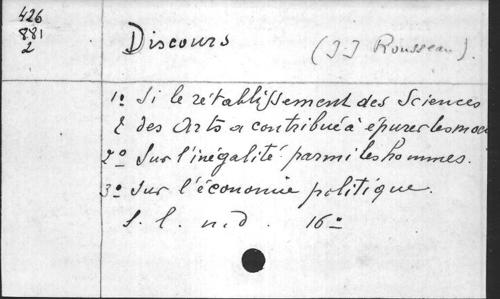 426
881
2
Discours (J-J Rousseau).
1º Si le rétablissement des Sciences
& des Arts a contribué à épurer les moe
2º Sur l'inégalité parmi les hommes.
3º Sur l'économie politique.
S. l. n. d. 16º